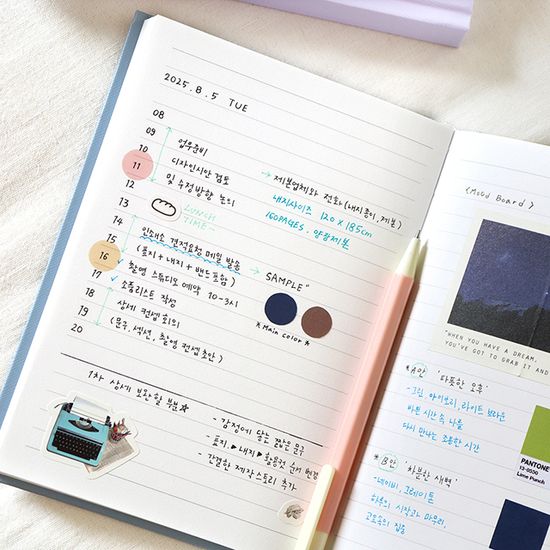 2025. 8. 5 TUE
08
09
10 업무준비
11 디자인시안 검토 → 제본업체와 전화 (내지종이, 제본)
12 및 수정방향 논의 내지사이즈 120 x 185cm
13 LUNCH TIME~ 160PAGES. 양장제본
14
15 인쇄소 견적요청 메일 발송
16 (표지 + 내지 + 밴드포함) → SAMPLE"
17 ✓ 촬영 스튜디오 예약 10-3시
18 ✓ 소품리스트 작성
19 상세 컨셉 회의 * Main color *
20 (문구, 색션, 촬영 컨셉 초안)
1차 상세 보완할 부분☆
- 감정에 닿는 짧은 문구
- 표지 ▶ 내지 ▶ 활용컷 순서 변경
- 간결한 제작스토리 추가
<Mood Board>
"WHEN YOU HAVE A DREAM,
YOU'VE GOT TO GRAB IT AND
*A안 '따뜻한 오후'
- 크림 아이보리, 라이트 브라운
바쁜 시간 속 나를
다시 만나는 조용한 시간
PANTONE
13-0550
Lime Punch
*B안 '차분한 새벽'
- 네이비, 그레이톤
하루의 시작과 마무리,
고요속의 집중